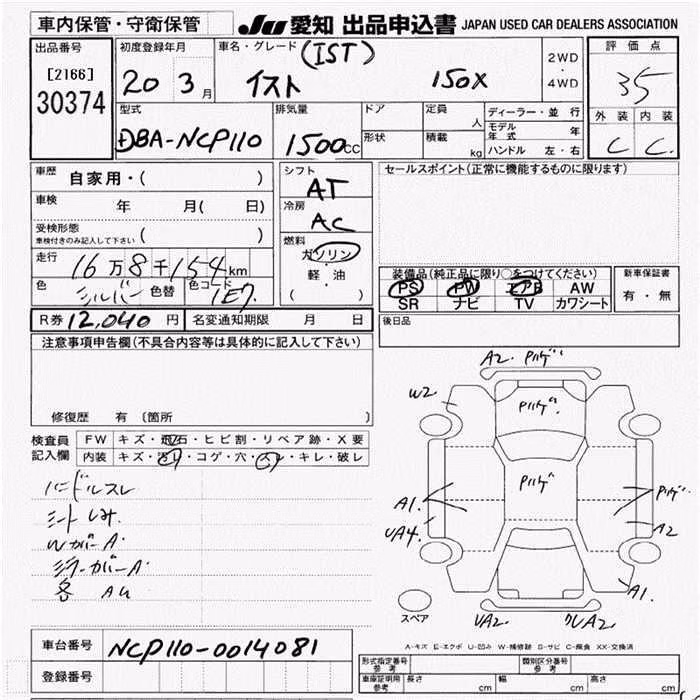 車内保管・守衛保管 JU 愛知 出品申込書 JAPAN USED CAR DEALERS ASSOCIATION
出品番号 初度登録年月 車名・グレード (IST) 2WD・4WD 評価点
[2166] 30374 20 3月 イスト 150X 35
型式 排気量 ドア 定員 人 ディーラー・並行 外装 内装
DBA-NCP110 1500cc 形状 積載 kg モデル年式 年 ハンドル 左・右 C C
車歴 自家用・( ) シフト AT セールスポイント(正常に機能するものに限ります)
車検 年 月( 日) 冷房 AC
受検形態 車検付きのみ記入して下さい ( ) 燃料 ガソリン
走行 16万8千154km 軽・油 装備品(純正品に限り○をつけてください) 新車保証書
色 シルバー 色替 色コード 1E7 ( ) PS PW エアB AW 有・無
SR ナビ TV カワシート
R券 12,040円 名変通知期限 月 日 後日品
注意事項申告欄(不具合内容等は具体的に記入して下さい)
修復歴 有 〔箇所 〕
検査員記入欄 FW キズ・飛石・ヒビ割・リペア跡・X要
内装 キズ・汚れ・コゲ・穴・スレ・キレ・破レ
ハンドルスレ
シートしみ
WカバーA
ミラーカバーA
各 AU
A2. Pハゲ
W2 Pハゲ
A1. Pハゲ Pハゲ
UA4. A2
A1.
スペア UA2 UA2
A-キズ E-エクボ U-凹み W-補修跡 S-サビ C-腐食 XX-交換済
車台番号 NCP110-0014081
登録番号
形式指定番号 参考 類別区分番号 参考
車庫証明用 参考 長さ cm 幅 cm 高さ cm